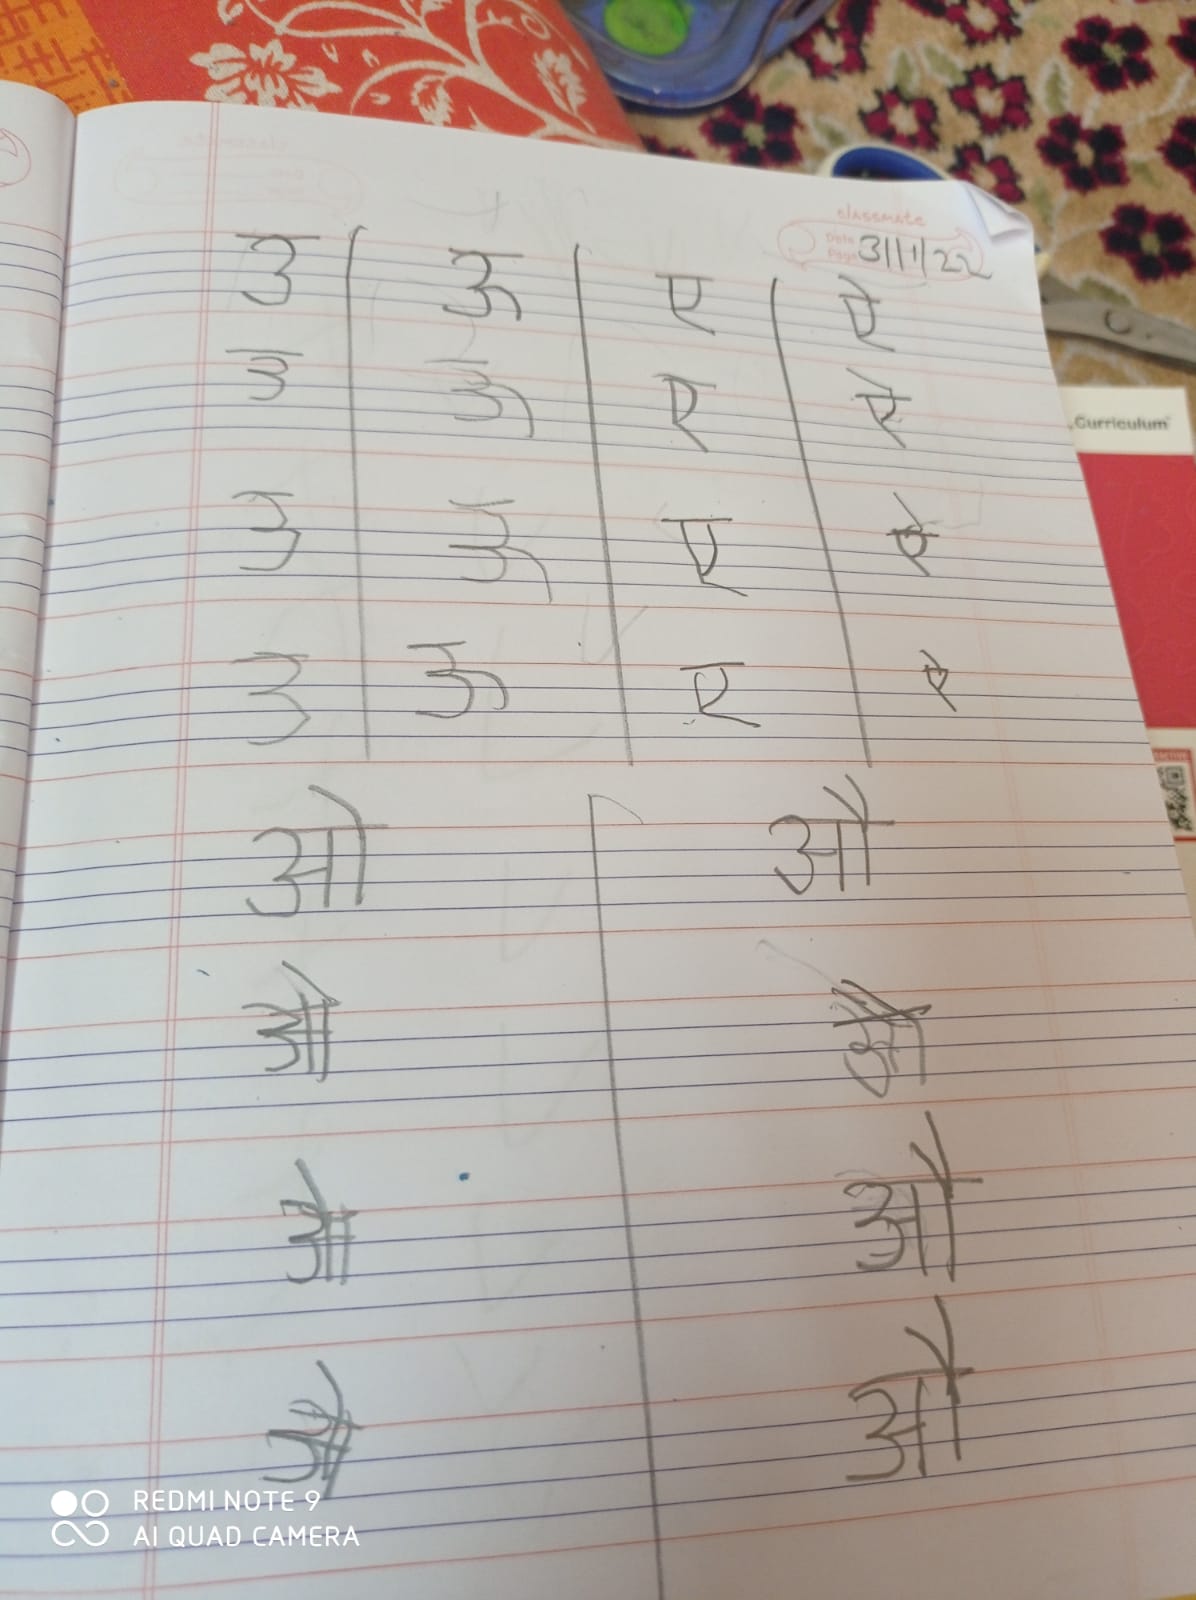 classmate
Date
Page 31/1/22
उ ऊ ए ऐ
उ ऊ ए ऐ
उ ऊ ए ऐ
उ ऊ ए ऐ
ओ औ
ओ औ
ओ औ
ओ औ
Curriculum
REDMI NOTE 9
AI QUAD CAMERA